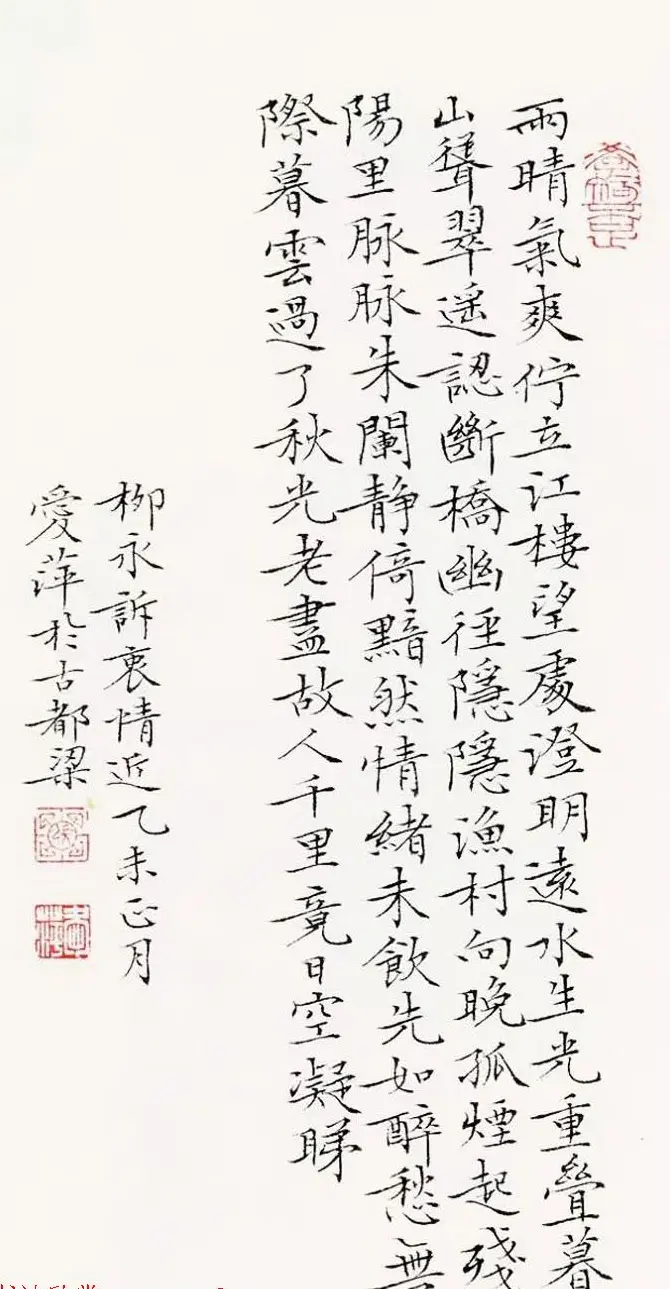 雨晴氣爽佇立江樓望處澄明遠水生光重疊暮
山聳翠遥認斷橋幽徑隱隱漁村向晚孤煙起殘
陽里脉脉朱闌静倚黯然情緒未飲先如醉愁無
際暮雲過了秋光老盡故人千里竟日空凝睇
柳永訴衷情近乙未正月
愛萍於古都梁